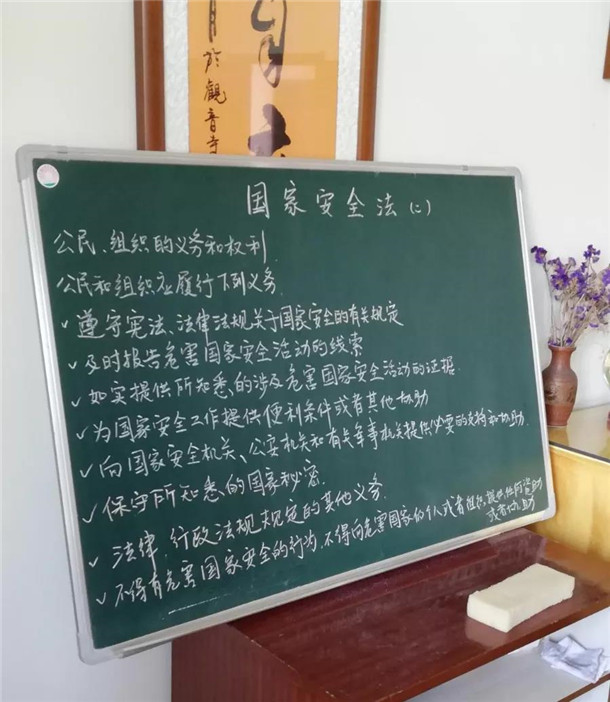 月於觀音寺
国家安全法(二)
公民、组织的义务和权利
公民和组织应履行下列义务
✓遵守宪法、法律法规关于国家安全的有关规定
✓及时报告危害国家安全活动的线索
✓如实提供所知悉的涉及危害国家安全活动的证据.
✓为国家安全工作提供便利条件或者其他协助
✓向国家安全机关、公安机关和有关军事机关提供必要的支持和协助.
✓保守所知悉的国家秘密.
✓法律、行政法规规定的其他义务.
✓不得有危害国家安全的行为,不得向危害国家的个人或者组织提供任何资助
或者协助